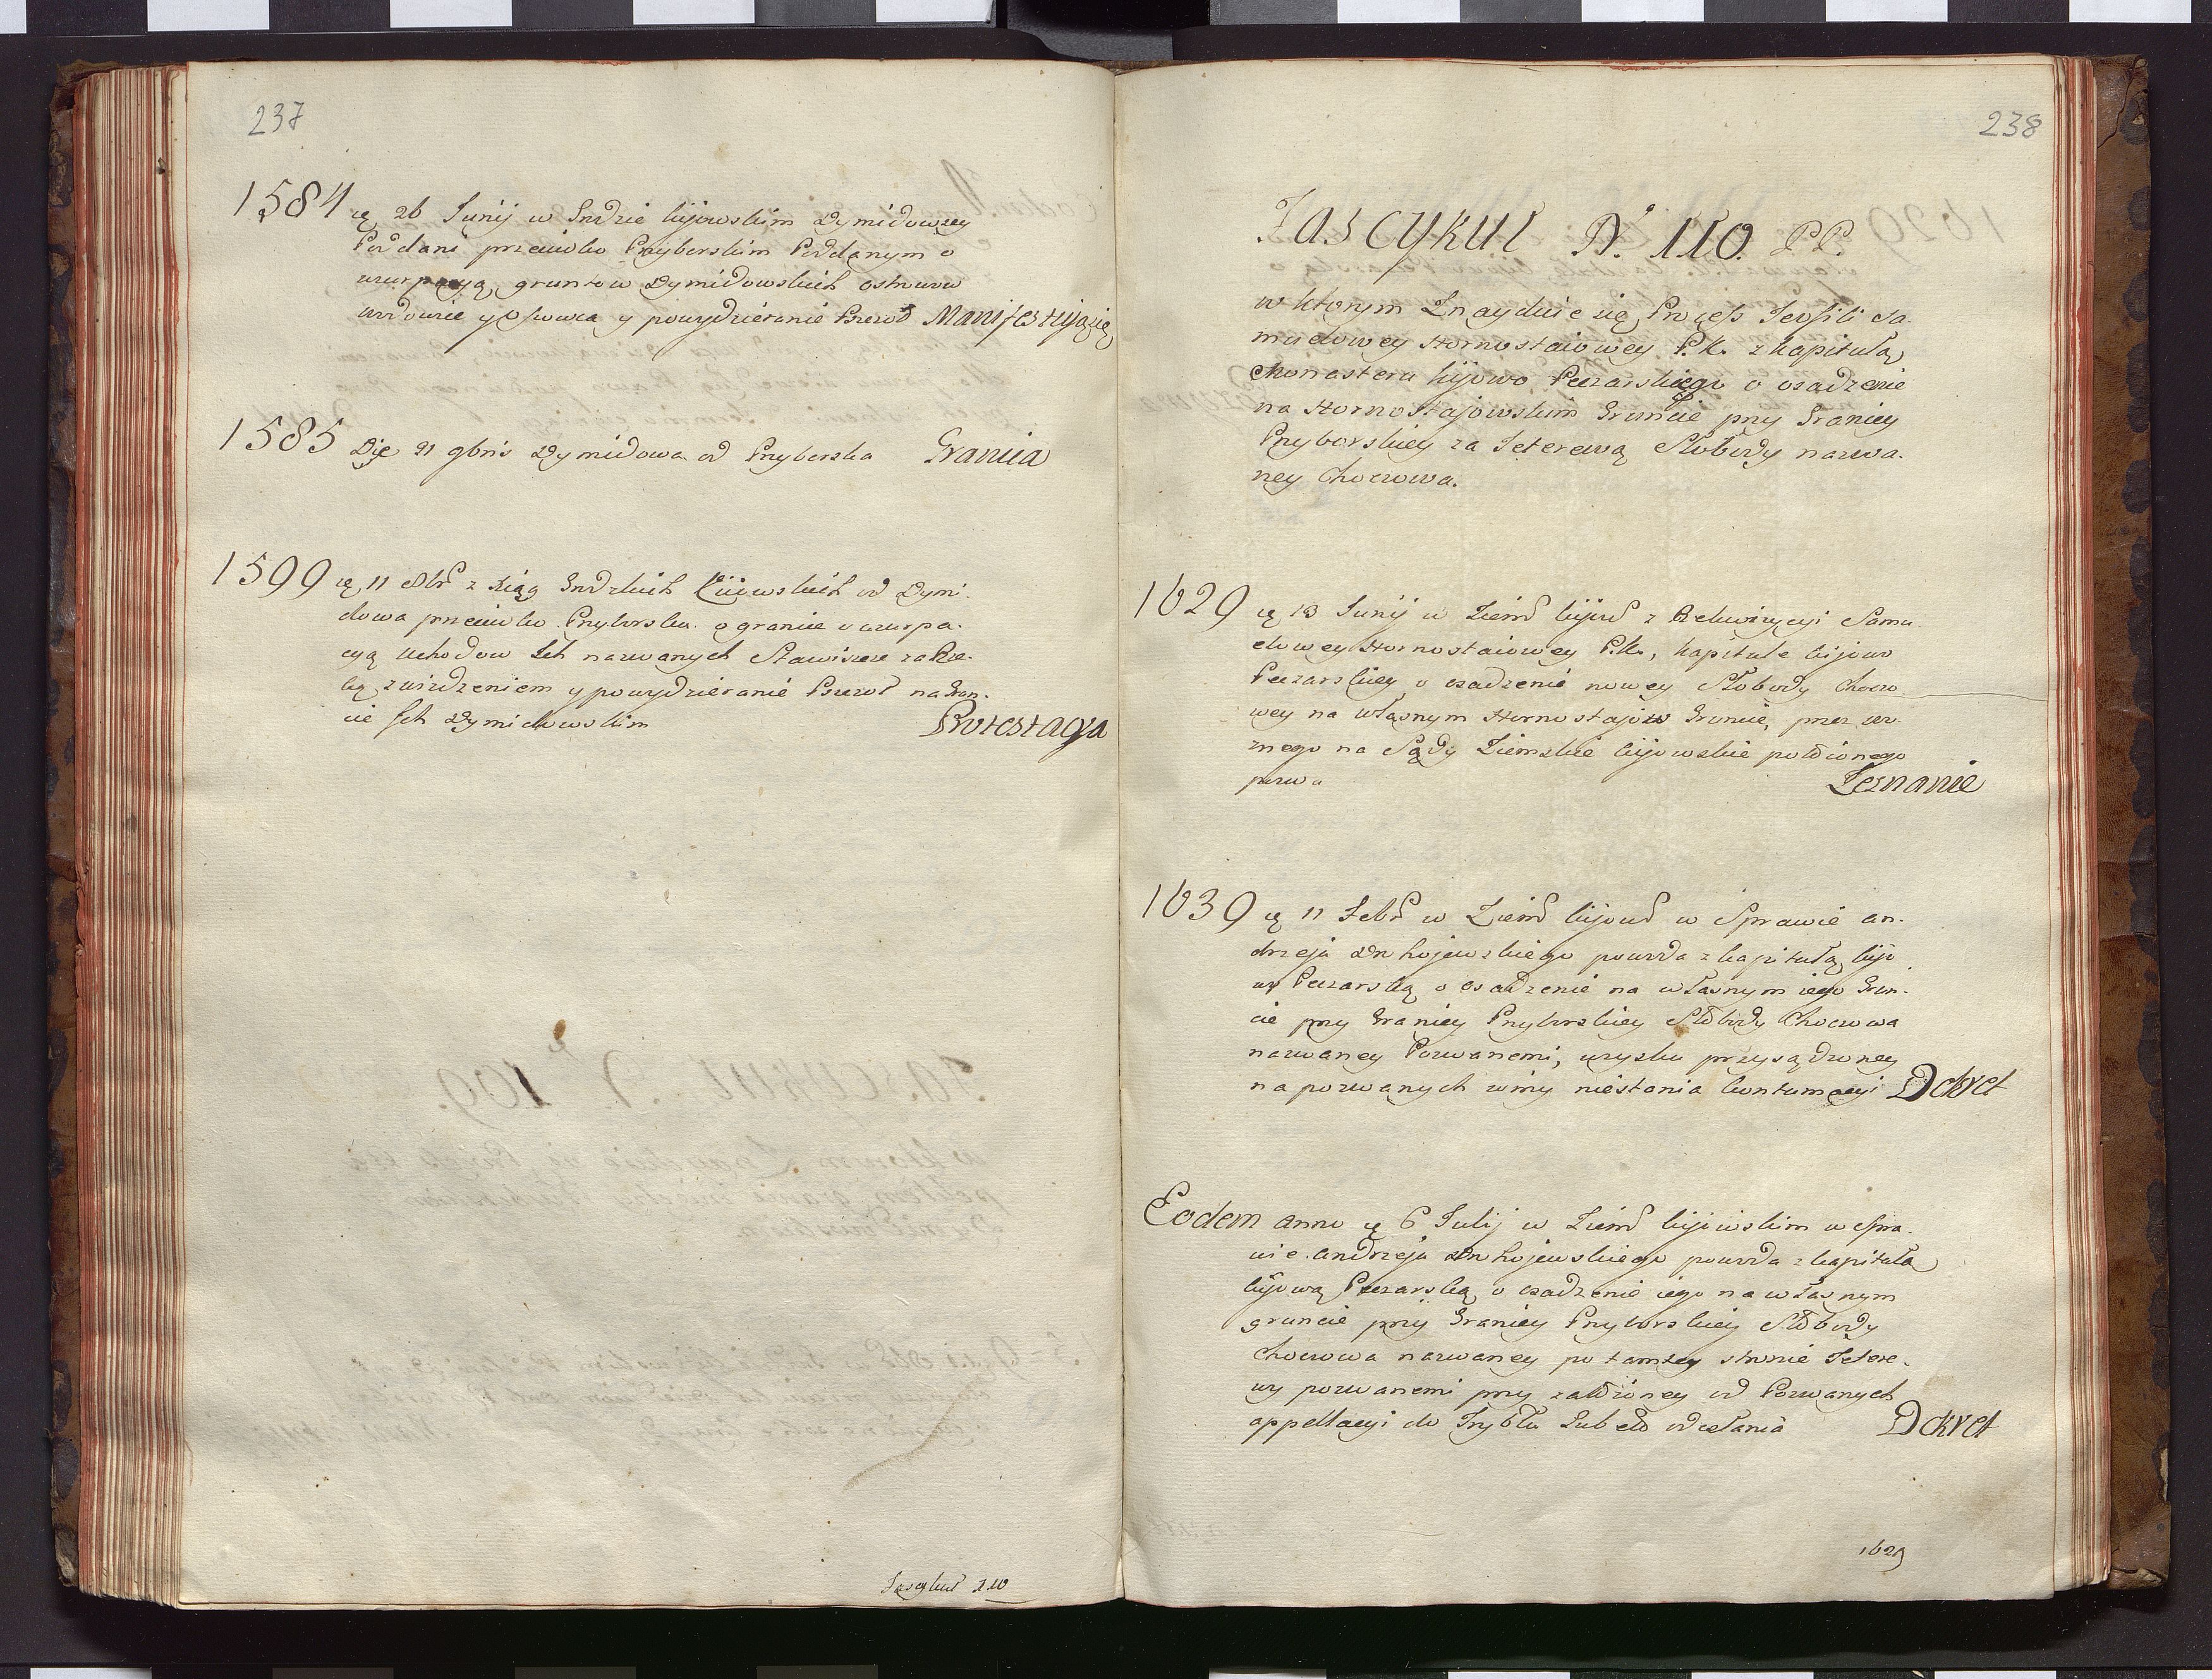 237
1584 ię 26 Junij w Grodzie kijowskim Dymidowscy
Poddani przeciwko Pryborskim Poddanym o
uzurpacyą gruntow Dymidowskich ostrurow
y powydzieranie Pszczoł Manifestująsię
1585 Die 21 9bris Dymidowa od Pryborska Grania
1599 ię 11 8br z Xiąg Grodzkich Kiiowskich od Dymi-
dowa przeciwko Pryborsku o granie o uzurpa-
cyą Uchodow Ich nazwanych Stawiszcze za Rze-
ką zwiedzeniem y powydzieranie Pszczoł na Grun-
cie Ich Dymidowskim Protestacya
Fascykuł 110
238
Fascykuł N. 110. P.P.
w ktorym Znayduie się Process Teofili Sa-
muelowey Hornostaiowey P.K. z Kapitułą
Monasteru kijowo Peczarskiego o osadzenie
na Hornostajowskim Gruncie przy Granicy
Pryborskiey za Teterewą Słobody nazwa-
ney Choczowa.
1629 ię 13 Junij w Ziems kijows z Rekwizycyi Samu
elowey Hornostaiowey P.K., kapitule kijowo
Peczarskiey o osadzenie nowey Słobody Choczo
wey na własnym Hornostajow Gruncie, przez wo-
znego na Sądy Ziemskie kijowskie położonego
pozwu Zeznanie
1639 ię 11 Febr w Ziems kijows w Sprawie An-
drzeja powoda z kapitułą kijo
wo Peczarską o osadzenie na własnym iego Grun-
cie przy Granicy Pryborskiey Słobody Choczowa
nazwaney Pozwanemi, uzysku przysądzoney
na pozwanych winy niestania kontumacyi Dekret
Eodem Anno ię 6 Julij w Ziems kijowskim w Spra-
wie Andrzeja powoda z kapitułą
kijowo Peczarską o osadzenie iego na własnym
gruncie przy Granicy Pryborskiey Słobody
Choczowa nazwaney po tamtey stronie Tetere-
wy pozwanemi przy założoney od Pozwanych
appellacyi do Trybłu Lubels odesłania Dekret
1629